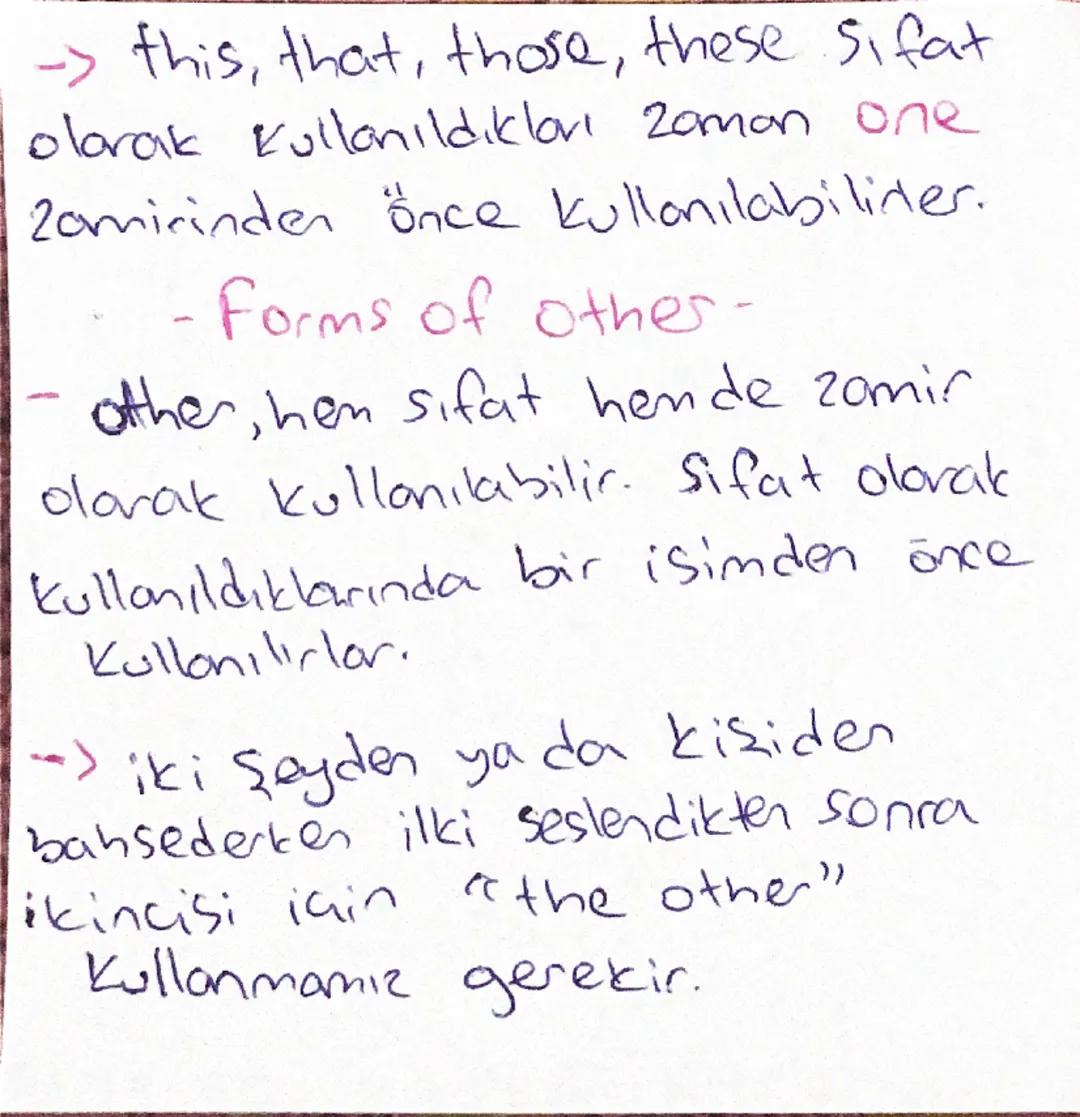 -> this, that, those, these sıfat
olarak kullanıldıkları zaman one
zamirinden önce kullanılabilirler.
- Forms of other -
- other, hem sıfat hem de zamir
olarak kullanılabilir. Sıfat olarak
kullanıldıklarında bir isimden önce
kullanılırlar.
-> iki şeyden ya da kişiden
bahsederken ilki seslendikten sonra
ikincisi için "the other"
kullanmamız gerekir.